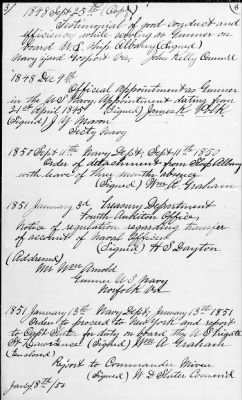 1848 Sept 25th (Copy)
Testimonial of good conduct and
efficiency while serving as Gunner on
board U.S. Ship Albany (Signed)
Navy Yard Gosport Va, John Kelly Comdr
1848 Dec 9th
Official Appointment as Gunner
in the U.S. Navy, Appointment dating from
21st April 1845 (Signed) James K. Polk
(Signed) J. Y. Mason
Secty Navy
1850 Sept 11th Navy Dept; Sept 11th 1850
Order of detachment from Ship Albany
with leave of three months absence
(Signed) Wm A. Graham
1851 January 3d, Treasury Department
Fourth Auditors Office,
Notice of regulation regarding transfer
of account of Naval Officers
(Signed) A O Dayton
(Address)
Mr Wm Arnold
Gunner U.S. Navy
Norfolk Va
1851 January 13th Navy Dept; January 13th 1851
Order to proceed to New York and report
to Capt for duty on board the U.S. Frigate
St Lawrence (Signed) Wm A Graham
(Endorsed)
Report to Commander
(Signed) W. D. Salter Comm'd
18th /51